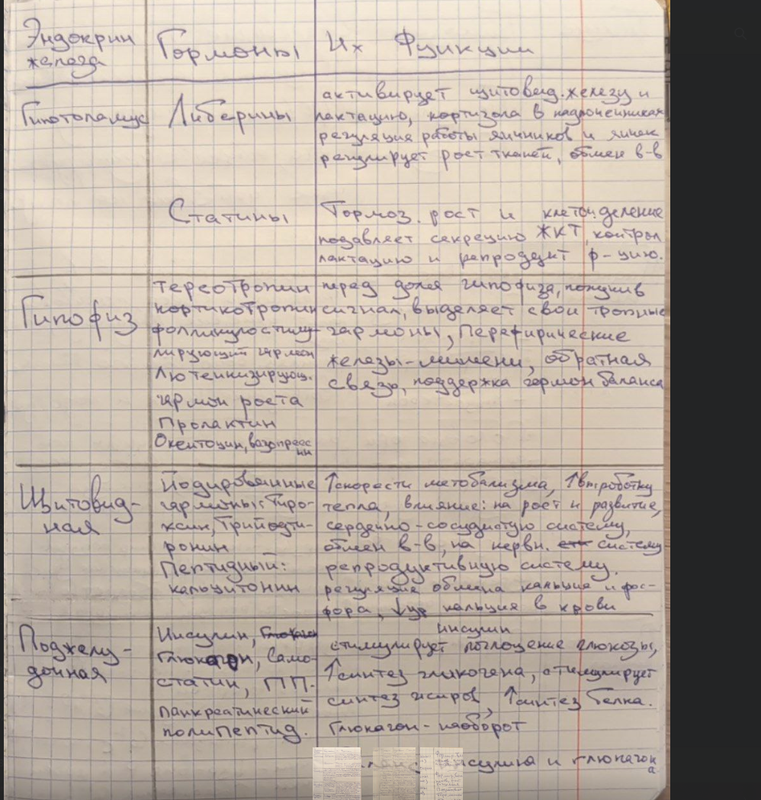 Эндокрин железа
Гормоны
Их Функции
Гипоталамус
Либерины
активирует щитовид. железу и
лактацию, кортизола в надпочечниках
регуляция работы яичников и яичек
регулирует рост тканей, обмен в-в
Статины
Тормоз. рост и клеточ. деление
подавляет секрецию ЖКТ, контрол
лактацию и репродукт ф-цию.
Гипофиз
тереотропин
кортикотропин
фолликулостиму-
лирующий гормон
Лютеинизирующ.
гармон роста
Пролактин
Окситоцин, вазопресс
ин
перед доля гипофиза, получив
сигнал, выделяет свои тропные
гармоны, Переферические
железы-мишени, обратная
связь, поддержка гормон баланса
Щитовид-
ная
Йодированные
гармоны: Тиро-
ксин, Трийодти-
ронин
Пептидный:
кальцитонин
↑скорости метобализма, ↑выработку
тепла, влияние: на рост и развитие,
сердечно-сосудистую систему,
обмен в-в, на нервн. систему
репродуктивную систему.
регуляция обмена кальция и фос-
фора, ↓ур кальция в крови
Поджелу-
дочная
Инсулин,
Глюкагон, Само-
статин, ПП.
панкреатический
полипептид.
инсулин
стимулирует поглощение глюкозы,
↑синтез гликогена, стимулирует
синтез жиров, ↑синтез белка.
Глюкагон - наоборот
инсулина и глюкагон
а